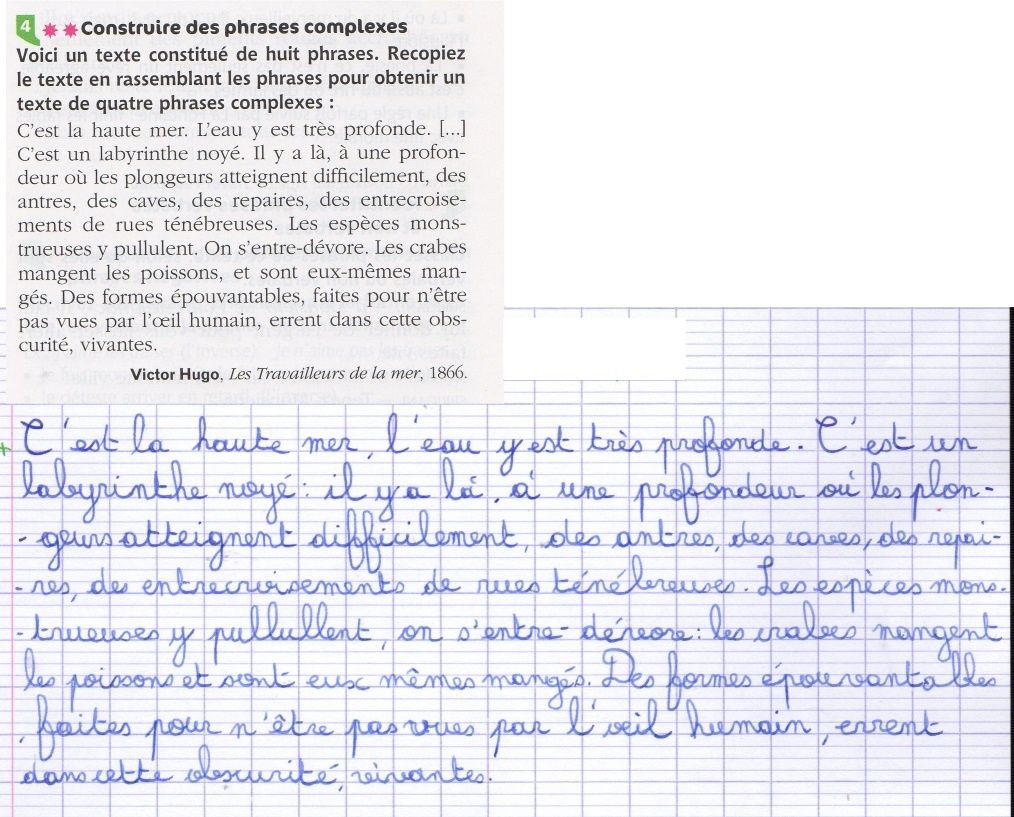 4 Construire des phrases complexes
Voici un texte constitué de huit phrases. Recopiez
le texte en rassemblant les phrases pour obtenir un
texte de quatre phrases complexes :
C'est la haute mer. L'eau y est très profonde. [...]
C'est un labyrinthe noyé. Il y a là, à une profon-
deur où les plongeurs atteignent difficilement, des
antres, des caves, des repaires, des entrecroise-
ments de rues ténébreuses. Les espèces mons-
trueuses y pullulent. On s'entre-dévore. Les crabes
mangent les poissons, et sont eux-mêmes man-
gés. Des formes épouvantables, faites pour n'être
pas vues par l'œil humain, errent dans cette obs-
curité, vivantes.
Victor Hugo, Les Travailleurs de la mer, 1866.
C'est la haute mer, l'eau y est très profonde. C'est un
labyrinthe noyé : il y a là, à une profondeur où les plon-
-geurs atteignent difficilement, des antres, des caves, des repai-
-res, des entrecroisements de rues ténébreuses. Les espèces mons-
-trueuses y pullullent, on s'entre-dévore : les crabes mangent
les poissons et sont eux mêmes mangés. Des formes épouvantables
, faites pour n'être pas vues par l'oeil humain, errent
dans cette obscurité, vivantes.